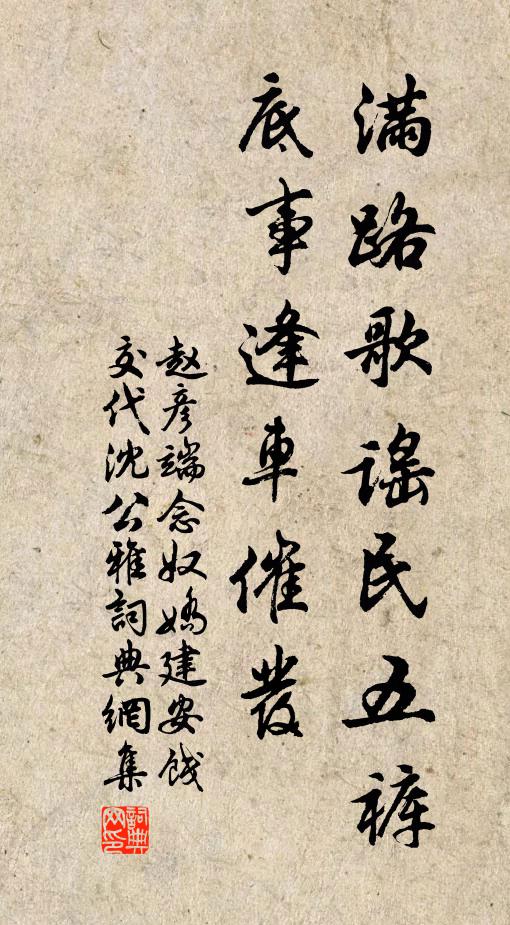 满路歌谣民五裤
底事逢车催发
赵彦端念奴娇建安饯
交代沈公雅詞典網集
詞典网印